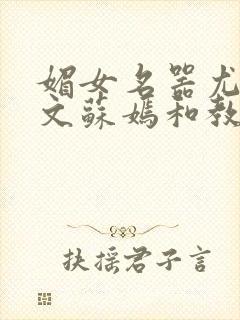 媚女名器尤
文蘇媽和教
扶摇君子言